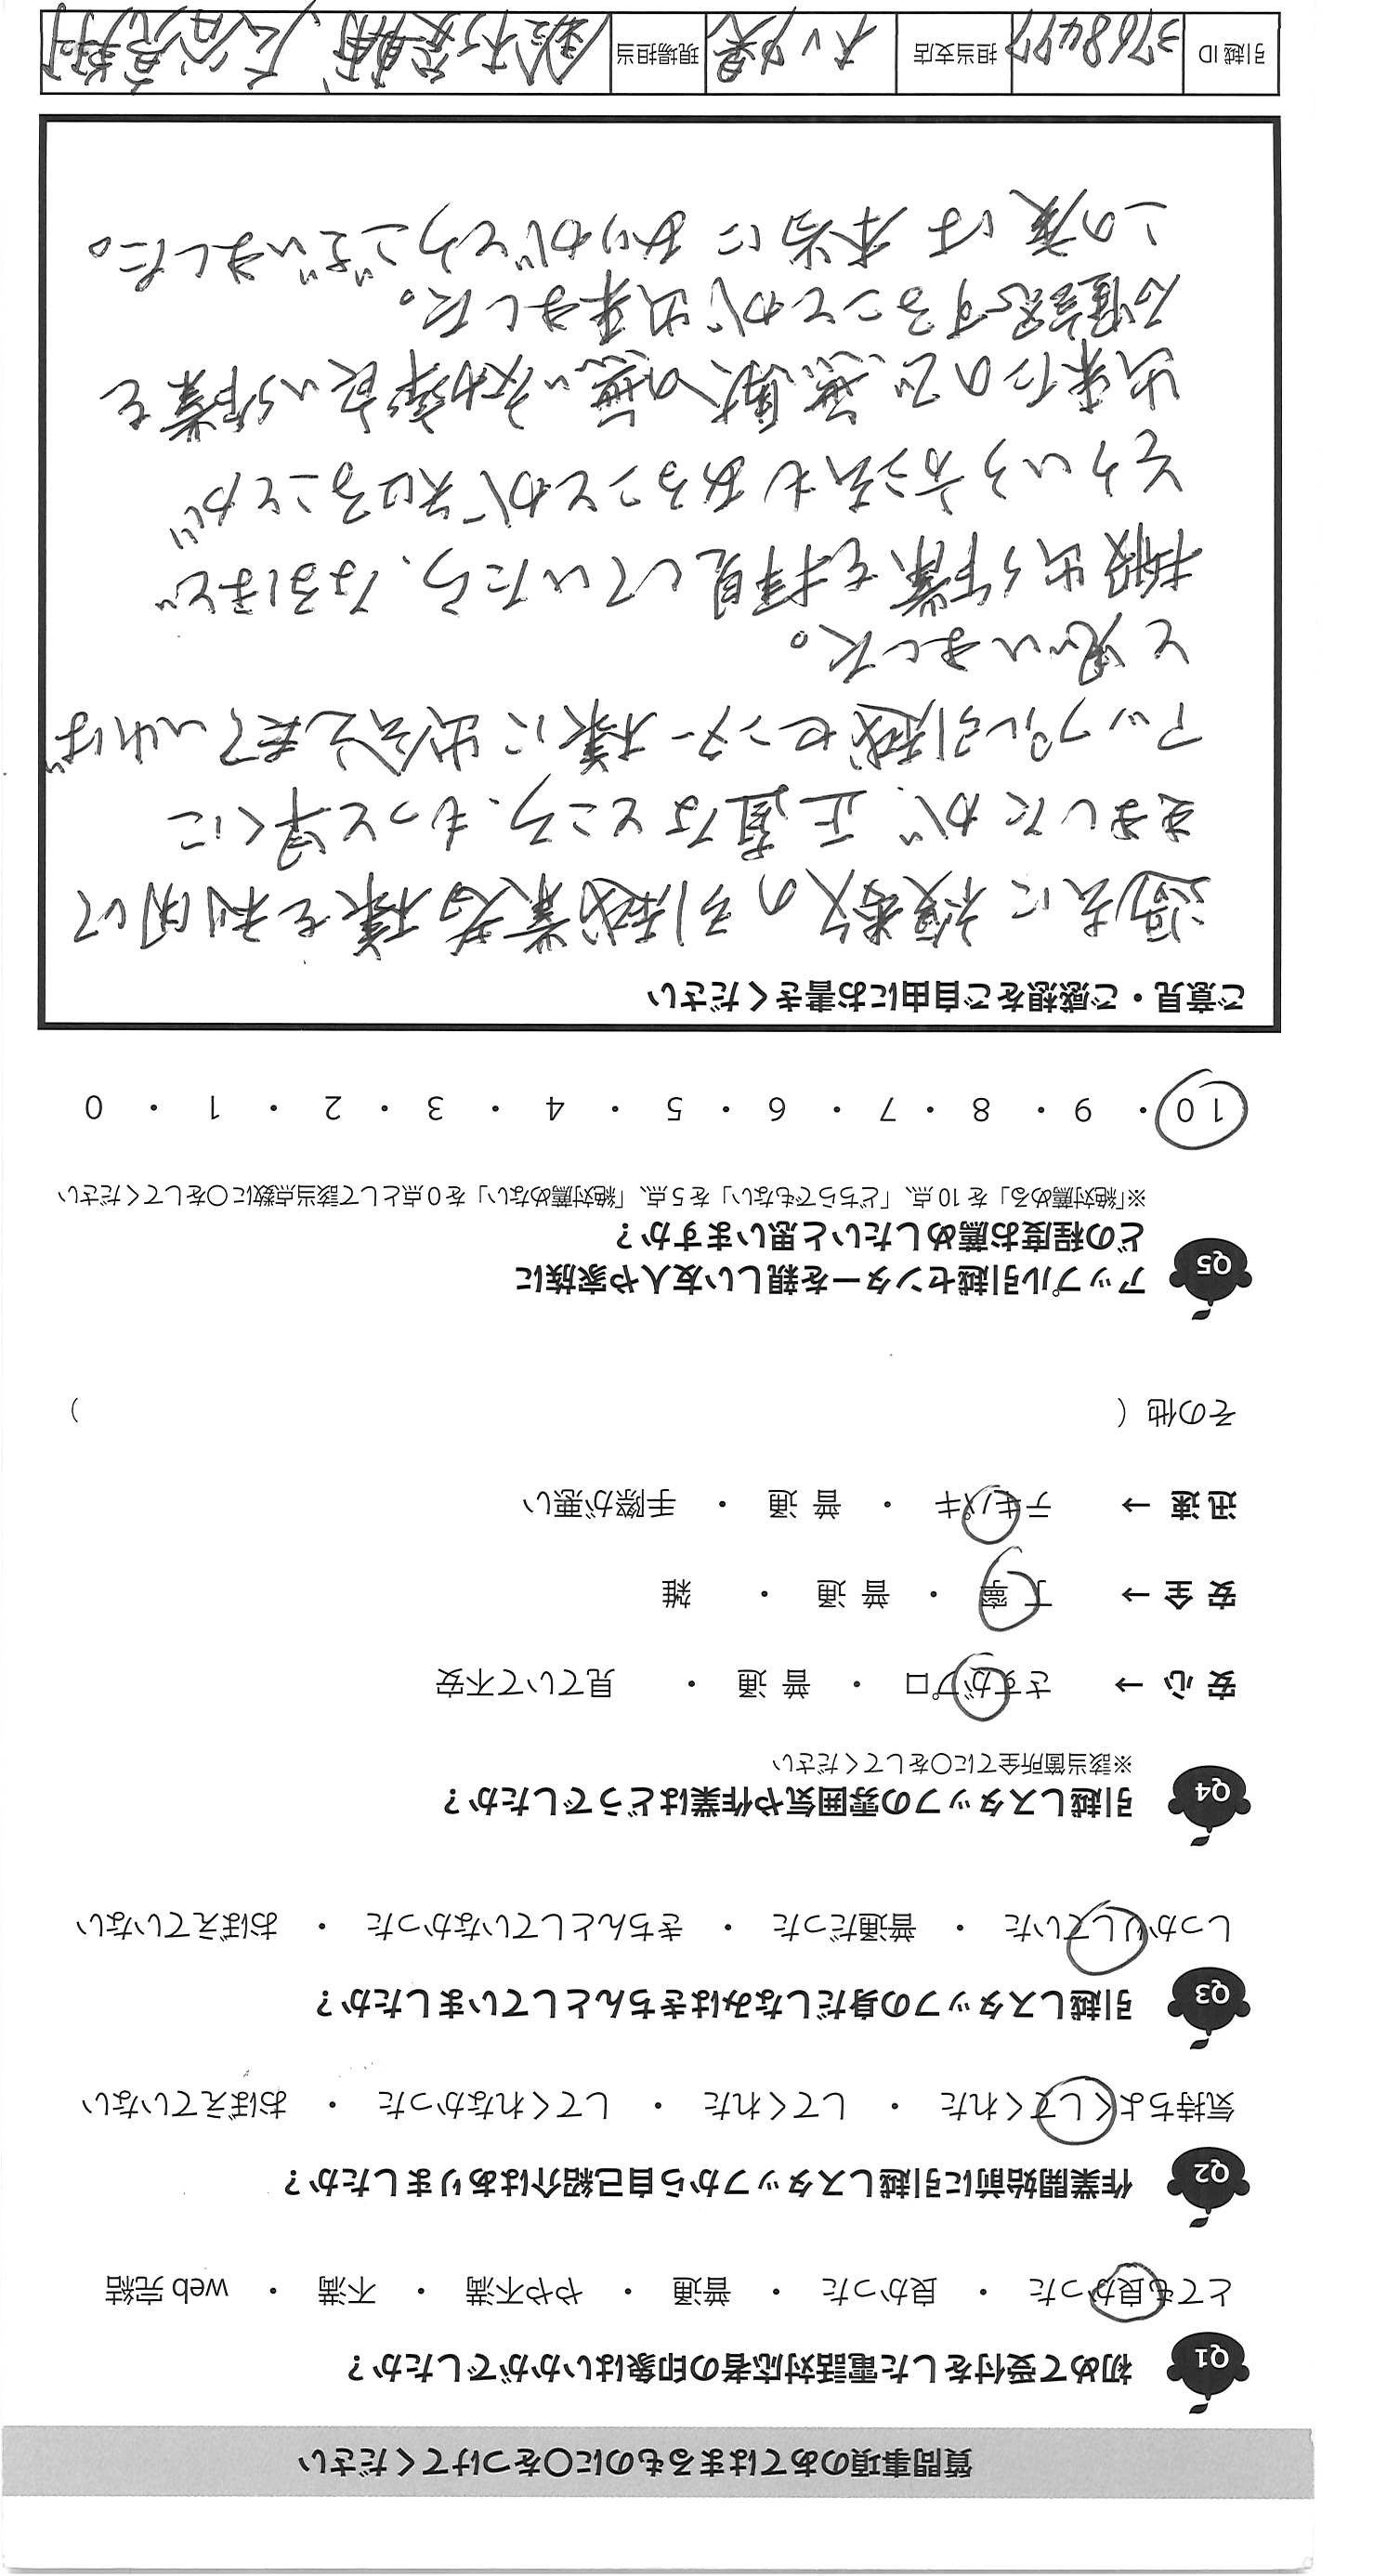 質問事項のあてはまるものに○をつけてください
Q1 初めて受付をした電話対応者の印象はいかがでしたか？
とても良かった ・ 良かった ・ 普通 ・ やや不満 ・ 不満 ・ web 完結
Q2 作業開始前に引越しスタッフから自己紹介はありましたか？
気持ちよくしてくれた ・ してくれた ・ してくれなかった ・ おぼえていない
Q3 引越しスタッフの身だしなみはきちんとしていましたか？
しっかりしていた ・ 普通だった ・ きちんとしていなかった ・ おぼえていない
Q4 引越しスタッフの雰囲気や作業はどうでしたか？
※該当箇所全てに○をしてください
安 心 → さすがプロ ・ 普 通 ・ 見ていて不安
安 全 → 丁寧 ・ 普 通 ・ 雑
迅 速 → テキパキ ・ 普 通 ・ 手際が悪い
その他（ ）
Q5 アップル引越センターを親しい友人や家族に
どの程度お薦めしたいと思いますか？
※「絶対薦める」を 10 点、「どちらでもない」を 5 点、「絶対薦めない」を 0 点として該当点数に○をしてください
10 ・ 9 ・ 8 ・ 7 ・ 6 ・ 5 ・ 4 ・ 3 ・ 2 ・ 1 ・ 0
ご意見・ご感想をご自由にお書きください
過去に複数の引越業者様を利用して
きましたが、正直なところ、もっと早くに
アップル引越センター様に出会えていれば
と思いました。
搬出作業を拝見していたら、なるほど
そういう方法もあることが知ることが
出来たので、無駄の無い効率良い作業を
確認することが出来ました。
この度は本当にありがとうございました。
引越 ID 3768497 担当支店 現場担当